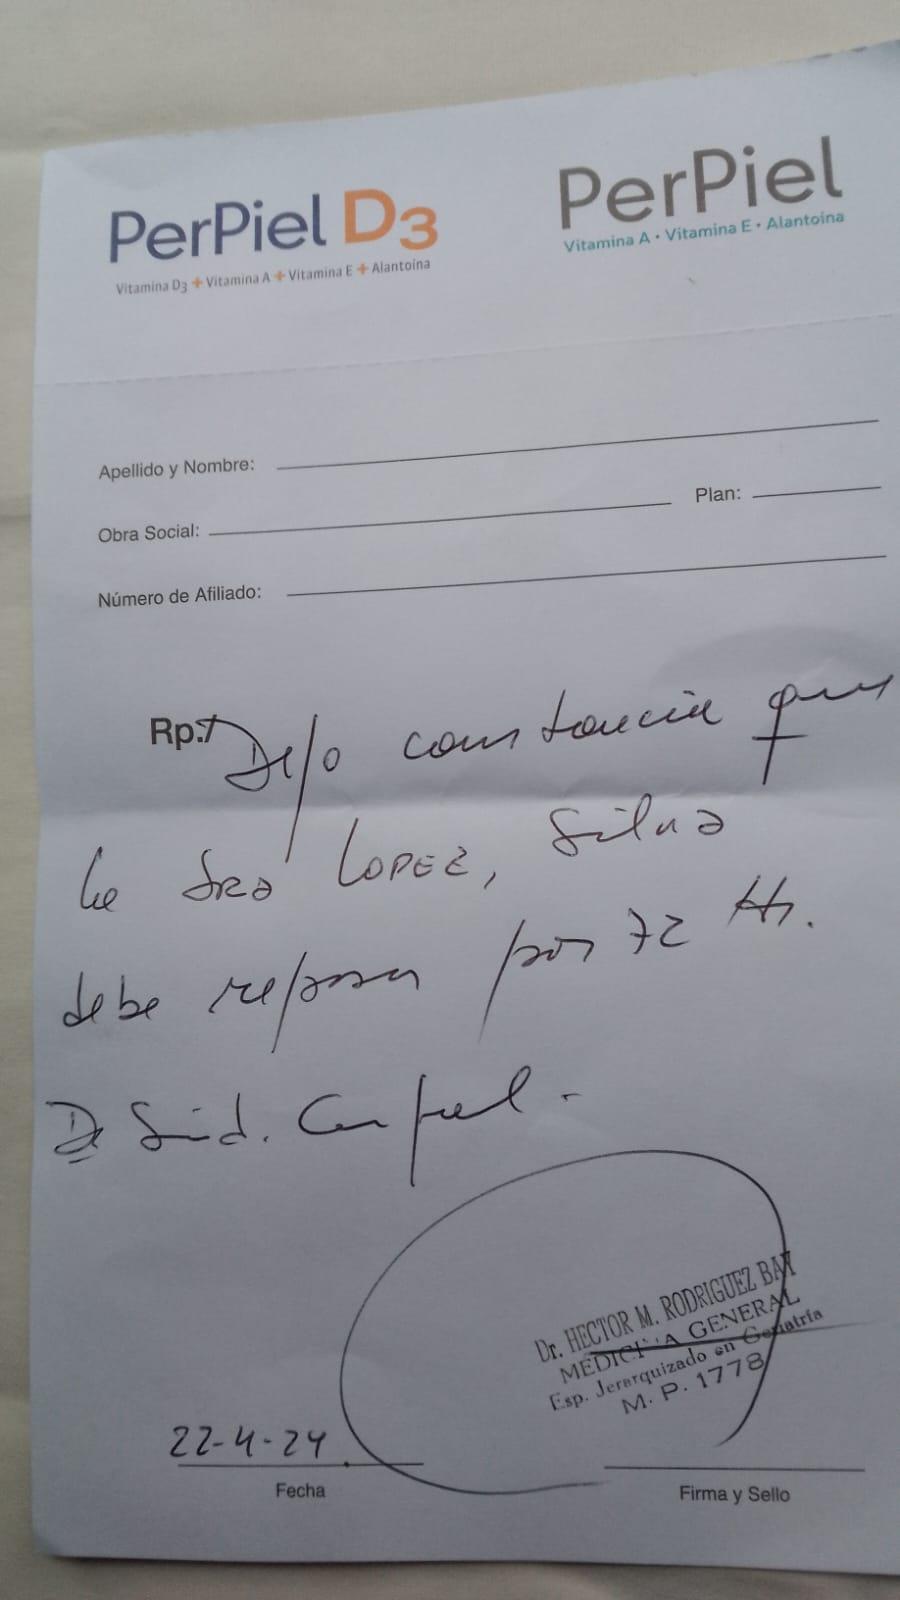 PerPiel D3
Vitamina D3 + Vitamina A + Vitamina E + Alantoina
PerPiel
Vitamina A • Vitamina E • Alantoina
Apellido y Nombre:
Obra Social:
Plan:
Número de Afiliado:
Rp.: Dejo constancia que
la Sra LOPEZ, Silvia
debe reposar por 72 Hs.
D Sind.
Dr. HECTOR M. RODRIGUEZ BAY
MEDICINA GENERAL
Esp. Jerarquizado en Geriatría
M. P. 1778
22-4-24
Fecha
Firma y Sello